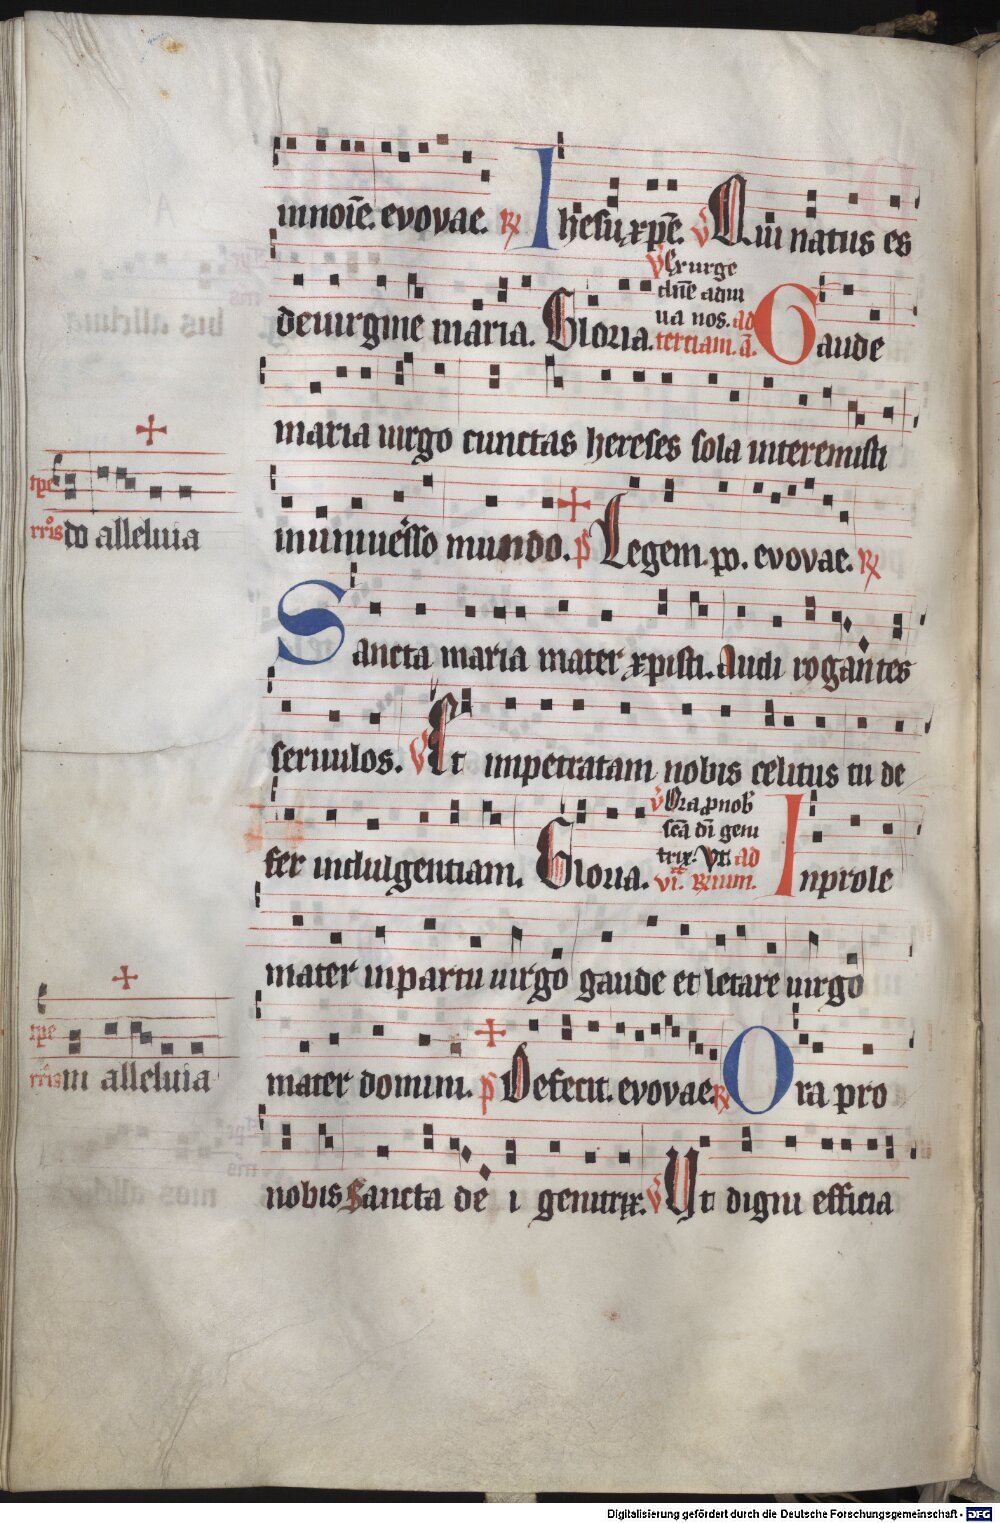 in noīe. evovae. ℟ Ihesu xp̄e. ℣ Qui natus es
de uirgine maria. Gloria. ℣ Exurge
dn̄e adiu
ua nos. ad
terciam. a̅. Gaude
maria uirgo cunctas hereses sola interemisti
in uniuerso mundo. ps Legem. po. evovae. ℟
Sancta maria mater xpisti. Audi rogantes
seruulos. ℣ Et impetratam nobis celitus tu de
fer indulgentiam. Gloria. ℣ Ora p nob
scā dī geni
trix. Vt. ad
vi. In prole
mater in partu uirgo gaude et letare uirgo
mater domini. ps Defecit. evovae. ℟ Ora pro
nobis Sancta de i genitrix. ℣ Ut digni efficia
tpe
rr̄is do alleluia
tpe
rr̄is ni alleluia
Digitalisierung gefördert durch die Deutsche Forschungsgemeinschaft - DFG